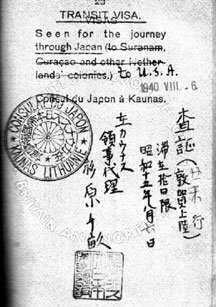 TRANSIT VISA.
Seen for the journey
through Japan (to Suranam,
Curaçao and other Nether-
lands' colonies.) to U.S.A.
1940 VIII. 6
Consul du Japon à Kaunas.
CONSULAT DU JAPON
KAUNAS LITHUANIE
査証
(敦賀上陸)
滞在拾日限
昭和十五年八月六日
在カウナス
領事代理
杉原千畝